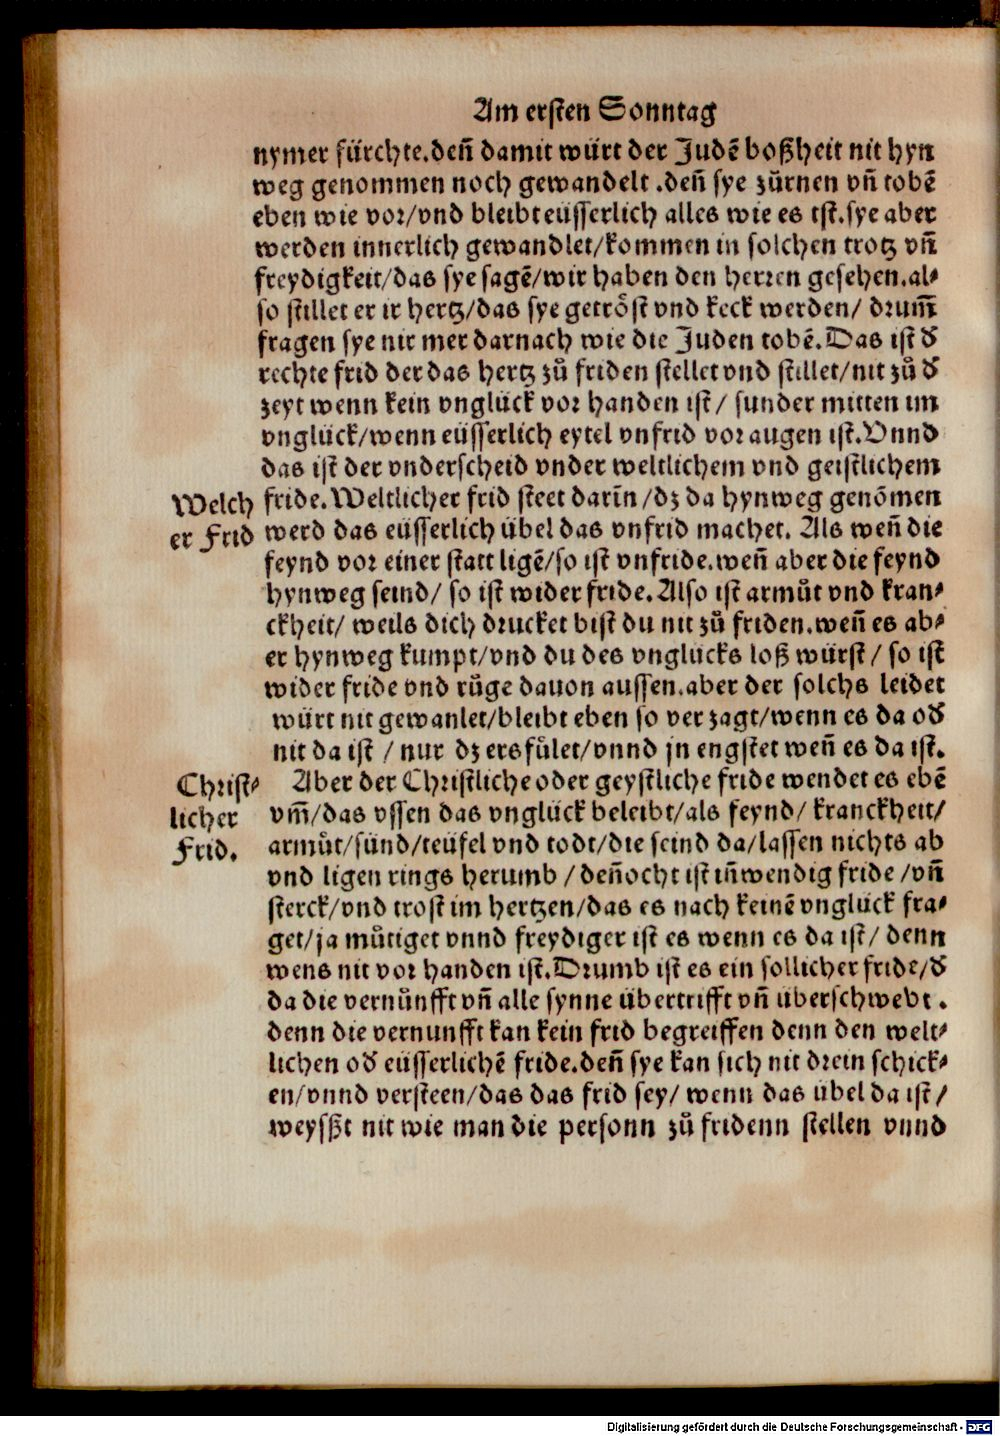 Am ersten Sonntag
nymer fürchte.deñ damit würt der Judẽ boßheit nit hyn
weg genommen noch gewandelt .deñ sye zürnen vñ tobẽ
eben wie vor/vnd bleibt eüsserlich alles wie es ist.sye aber
werden innerlich gewandlet/kommen in solchen trotz vñ
freydigkeit/das sye sagẽ/wir haben den herren gesehen.al⸗
so stillet er ir hertz/das sye getröst vnd keck werden/ drum̃
fragen sye nit mer darnach wie die Juden tobẽ.Das ist đ
rechte frid der das hertz zů friden stellet vnd stillet/nit zů đ
zeyt wenn kein vnglück vor handen ist/ sunder mitten im
vnglück/wenn eüsserlich eytel vnfrid vor augen ist.Vnnd
das ist der vnderscheid vnder weltlichem vnd geistlichem
Welch
er Frid
fride.Weltlicher frid steet darĩn/dz da hynweg genõmen
werd das eüsserlich übel das vnfrid machet. Als weñ die
feynd vor einer statt ligẽ/so ist vnfride.weñ aber die feynd
hynweg seind/ so ist wider fride.Also ist armůt vnd kran⸗
ckheit/ weils dich drucket bist du nit zů friden.weñ es ab⸗
er hynweg kumpt/vnd du des vnglücks loß würst/ so ist
wider fride vnd růge dauon aussen.aber der solchs leidet
würt nit gewanlet/bleibt eben so verzagt/wenn es da ođ
nit da ist / nur dz ers fůlet/vnnd jn engstet weñ es da ist.
Christ⸗
licher
Frid.
Aber der Christliche oder geystliche fride wendet es ebẽ
vm̃/das vssen das vnglück beleibt/als feynd/ kranckheit/
armůt/sünd/teüfel vnd todt/die seind da/lassen nichts ab
vnd ligen rings herumb / deñocht ist iñwendig fride /vñ
sterck/vnd trost im hertzen/das es nach keinẽ vnglück fra⸗
get/ja můtiget vnnd freydiger ist es wenn es da ist/ denn
wens nit vor handen ist.Drumb ist es ein sollicher fride/đ
da die vernůnfft vñ alle synne übertrifft vñ überschwebt .
denn die vernunfft kan kein frid begreiffen denn den welt⸗
lichen ođ eüsserlichẽ fride.deñ sye kan sich nit drein schick⸗
en/vnnd versteen/das das frid sey/ wenn das übel da ist/
weysßt nit wie man die personn zů fridenn stellen vnnd
Digitalisierung gefördert durch die Deutsche Forschungsgemeinschaft - DFG